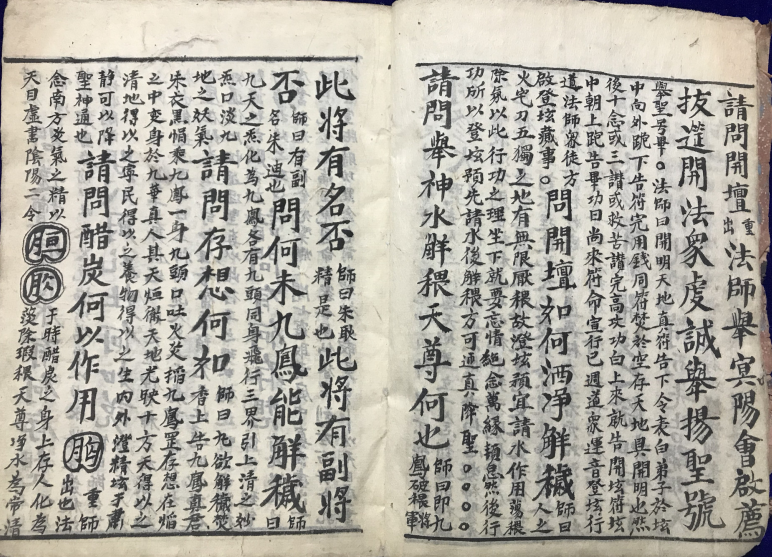 請問開壇重出法師舉㝠陽會啟薦
拔𨔝開法衆虔誠舉揚聖號
舉聖号畢○法師曰開明天地真符告下令表白弟子於坛
中向外跪下告符完用錢同符焚於空存天地具開明也然
後十念或三讃或救苦讃完高功功白上來就告開坛符坛
中朝上跪告畢功曰尚來符命宣行已週道衆運音登坛行
道法師衆徒方
啟登坛藏事○問開壇如何洒凈解穢師曰人之
火宅刀五獨之地有無限厭穢故澄坛須宜請水作用蕩穢
氣以此行功之理坐下就要忘情絕念萬緣頓息然後行
功所以登坛預先請水後解穢方可通真降聖○○○○
請問舉神水解穢天尊何也師曰即九鳳破穢將軍
此將有名否師曰朱耿精是也此將有副將
否師曰有副名朱迪也問何未九鳳能解穢師曰
九天之炁化為九鳳各有九頭同身飛行三界引上清之玅
炁口淡九
地之妖氣請問存想何如師曰凡欲解穢焚香上告九鳳真君
朱衣黑帽乘九鳳一身九頭口吐火炎稻九鳳罡存想在焰
之中变身於九華真人其天烜微天地光駛十方天得以之
清地得以之寧民得以之養物得以之生内外澄精坛于肅
靜可以降
聖神通也請問醋炭何以作用重出師曰也法
念南方炎氣之精以于時醋炭之身上存人化為
天目虛書陰陽二令蕩除瑕穢天尊噀水為常清